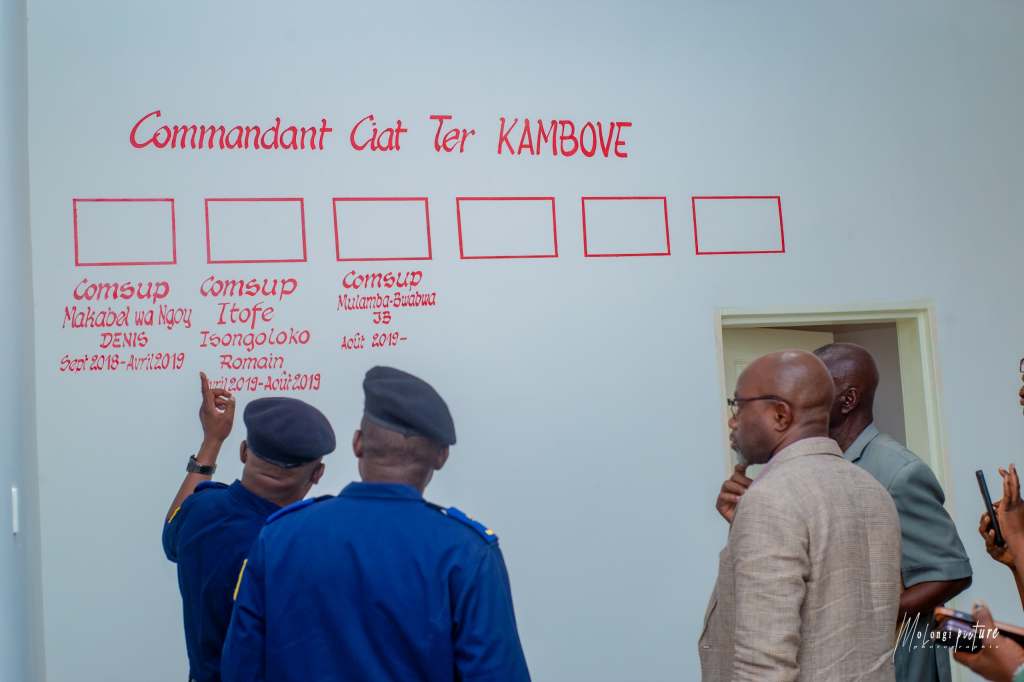 Commandant Ciat Ter KAMBOVE
Comsup
Makabel wa Ngoy
DENIS
Sept 2018-Avril 2019
Comsup
Itofe
Isongoloko
Romain
vril 2019-Août 2019
Comsup
Mulamba-Bwabwa
JB
Août 2019-
Molongi picture
photographie